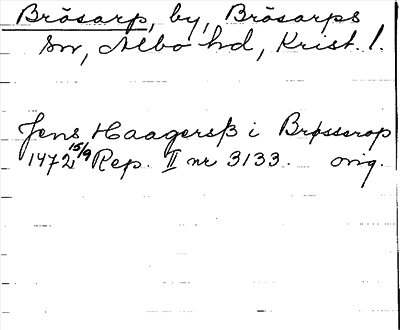 Brösarp, by, Brösarps
sn, Albo hd, Krist. l.
Jens Haagersß i Brøsserop
1472 15/9 Rep. II nr 3133. orig.